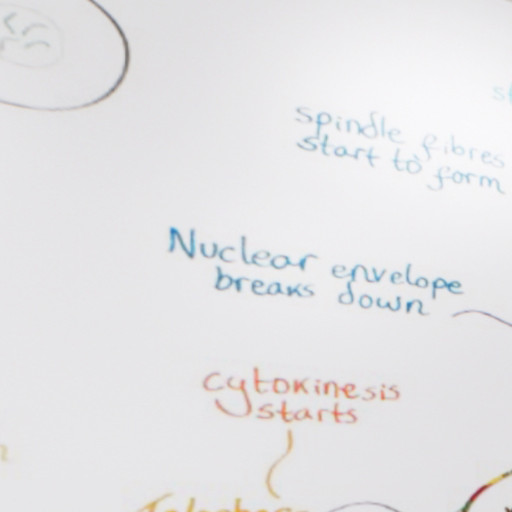 spindle fibres
start to form
Nuclear envelope
breaks down
cytokinesis
starts